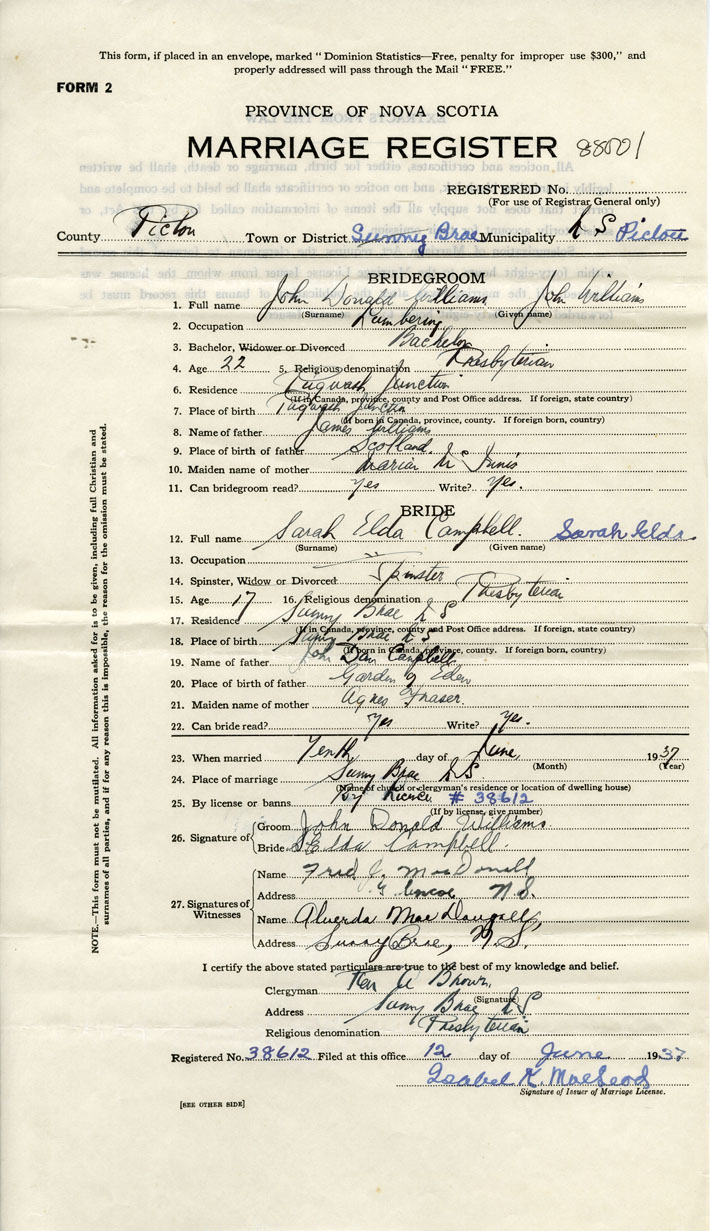 This form, if placed in an envelope, marked "Dominion Statistics—Free, penalty for improper use $300," and
properly addressed will pass through the Mail "FREE."
FORM 2
PROVINCE OF NOVA SCOTIA
MARRIAGE REGISTER 88501
REGISTERED No.
(For use of Registrar General only)
County Pictou Town or District Sunny Brae Municipality N S Pictou
BRIDEGROOM
1. Full name John Donald Williams John Williams
(Surname) (Given name)
2. Occupation Lumbering
3. Bachelor, Widower or Divorced Bachelor
4. Age 22 5. Religious denomination Presbyterian
6. Residence Pugwash Junction
(If in Canada, province, county and Post Office address. If foreign, state country)
7. Place of birth Pugwash Junction
(If born in Canada, province, county. If foreign born, country)
8. Name of father James Williams
9. Place of birth of father Scotland.
10. Maiden name of mother Marian
11. Can bridegroom read? Yes Write? Yes.
BRIDE
12. Full name Sarah Elda Campbell. Sarah Elda
(Surname) (Given name)
13. Occupation
14. Spinster, Widow or Divorced Spinster
15. Age 17 16. Religious denomination Presbyterian
17. Residence Sunny Brae N S
(If in Canada, province, county and Post Office address. If foreign, state country)
18. Place of birth Sunny Brae N S
(If born in Canada, province, county. If foreign born, country)
19. Name of father John Dan Campbell
20. Place of birth of father Garden of Eden
21. Maiden name of mother Agnes Fraser.
22. Can bride read? Yes Write? Yes.
23. When married Tenth day of June 1937
(Month) (Year)
24. Place of marriage Sunny Brae N S
(Name of church or clergyman's residence or location of dwelling house)
25. By license or banns By license # 38612
(If by license, give number)
26. Signature of
Groom John Donald Williams
Bride S Elda Campbell.
27. Signatures of Witnesses
Name Fred C. MacDonald
Address N.S.
Name Alverda MacDougall,
Address Sunny Brae, N.S.
I certify the above stated particulars are true to the best of my knowledge and belief.
Clergyman Rev A Brown,
(Signature)
Address Sunny Brae N S
Religious denomination Presbyterian
Registered No. 38612 Filed at this office 12 day of June 1937
Isabel K. MacLeod
Signature of Issuer of Marriage License.
[SEE OTHER SIDE]
NOTE.—This form must not be mutilated. All information asked for is to be given, including full Christian and
surnames of all parties, and if for any reason this is impossible, the reason for the omission must be stated.